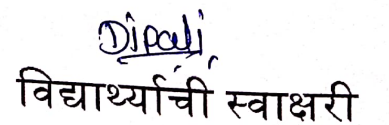 Dipali
विद्यार्थ्याची स्वाक्षरी